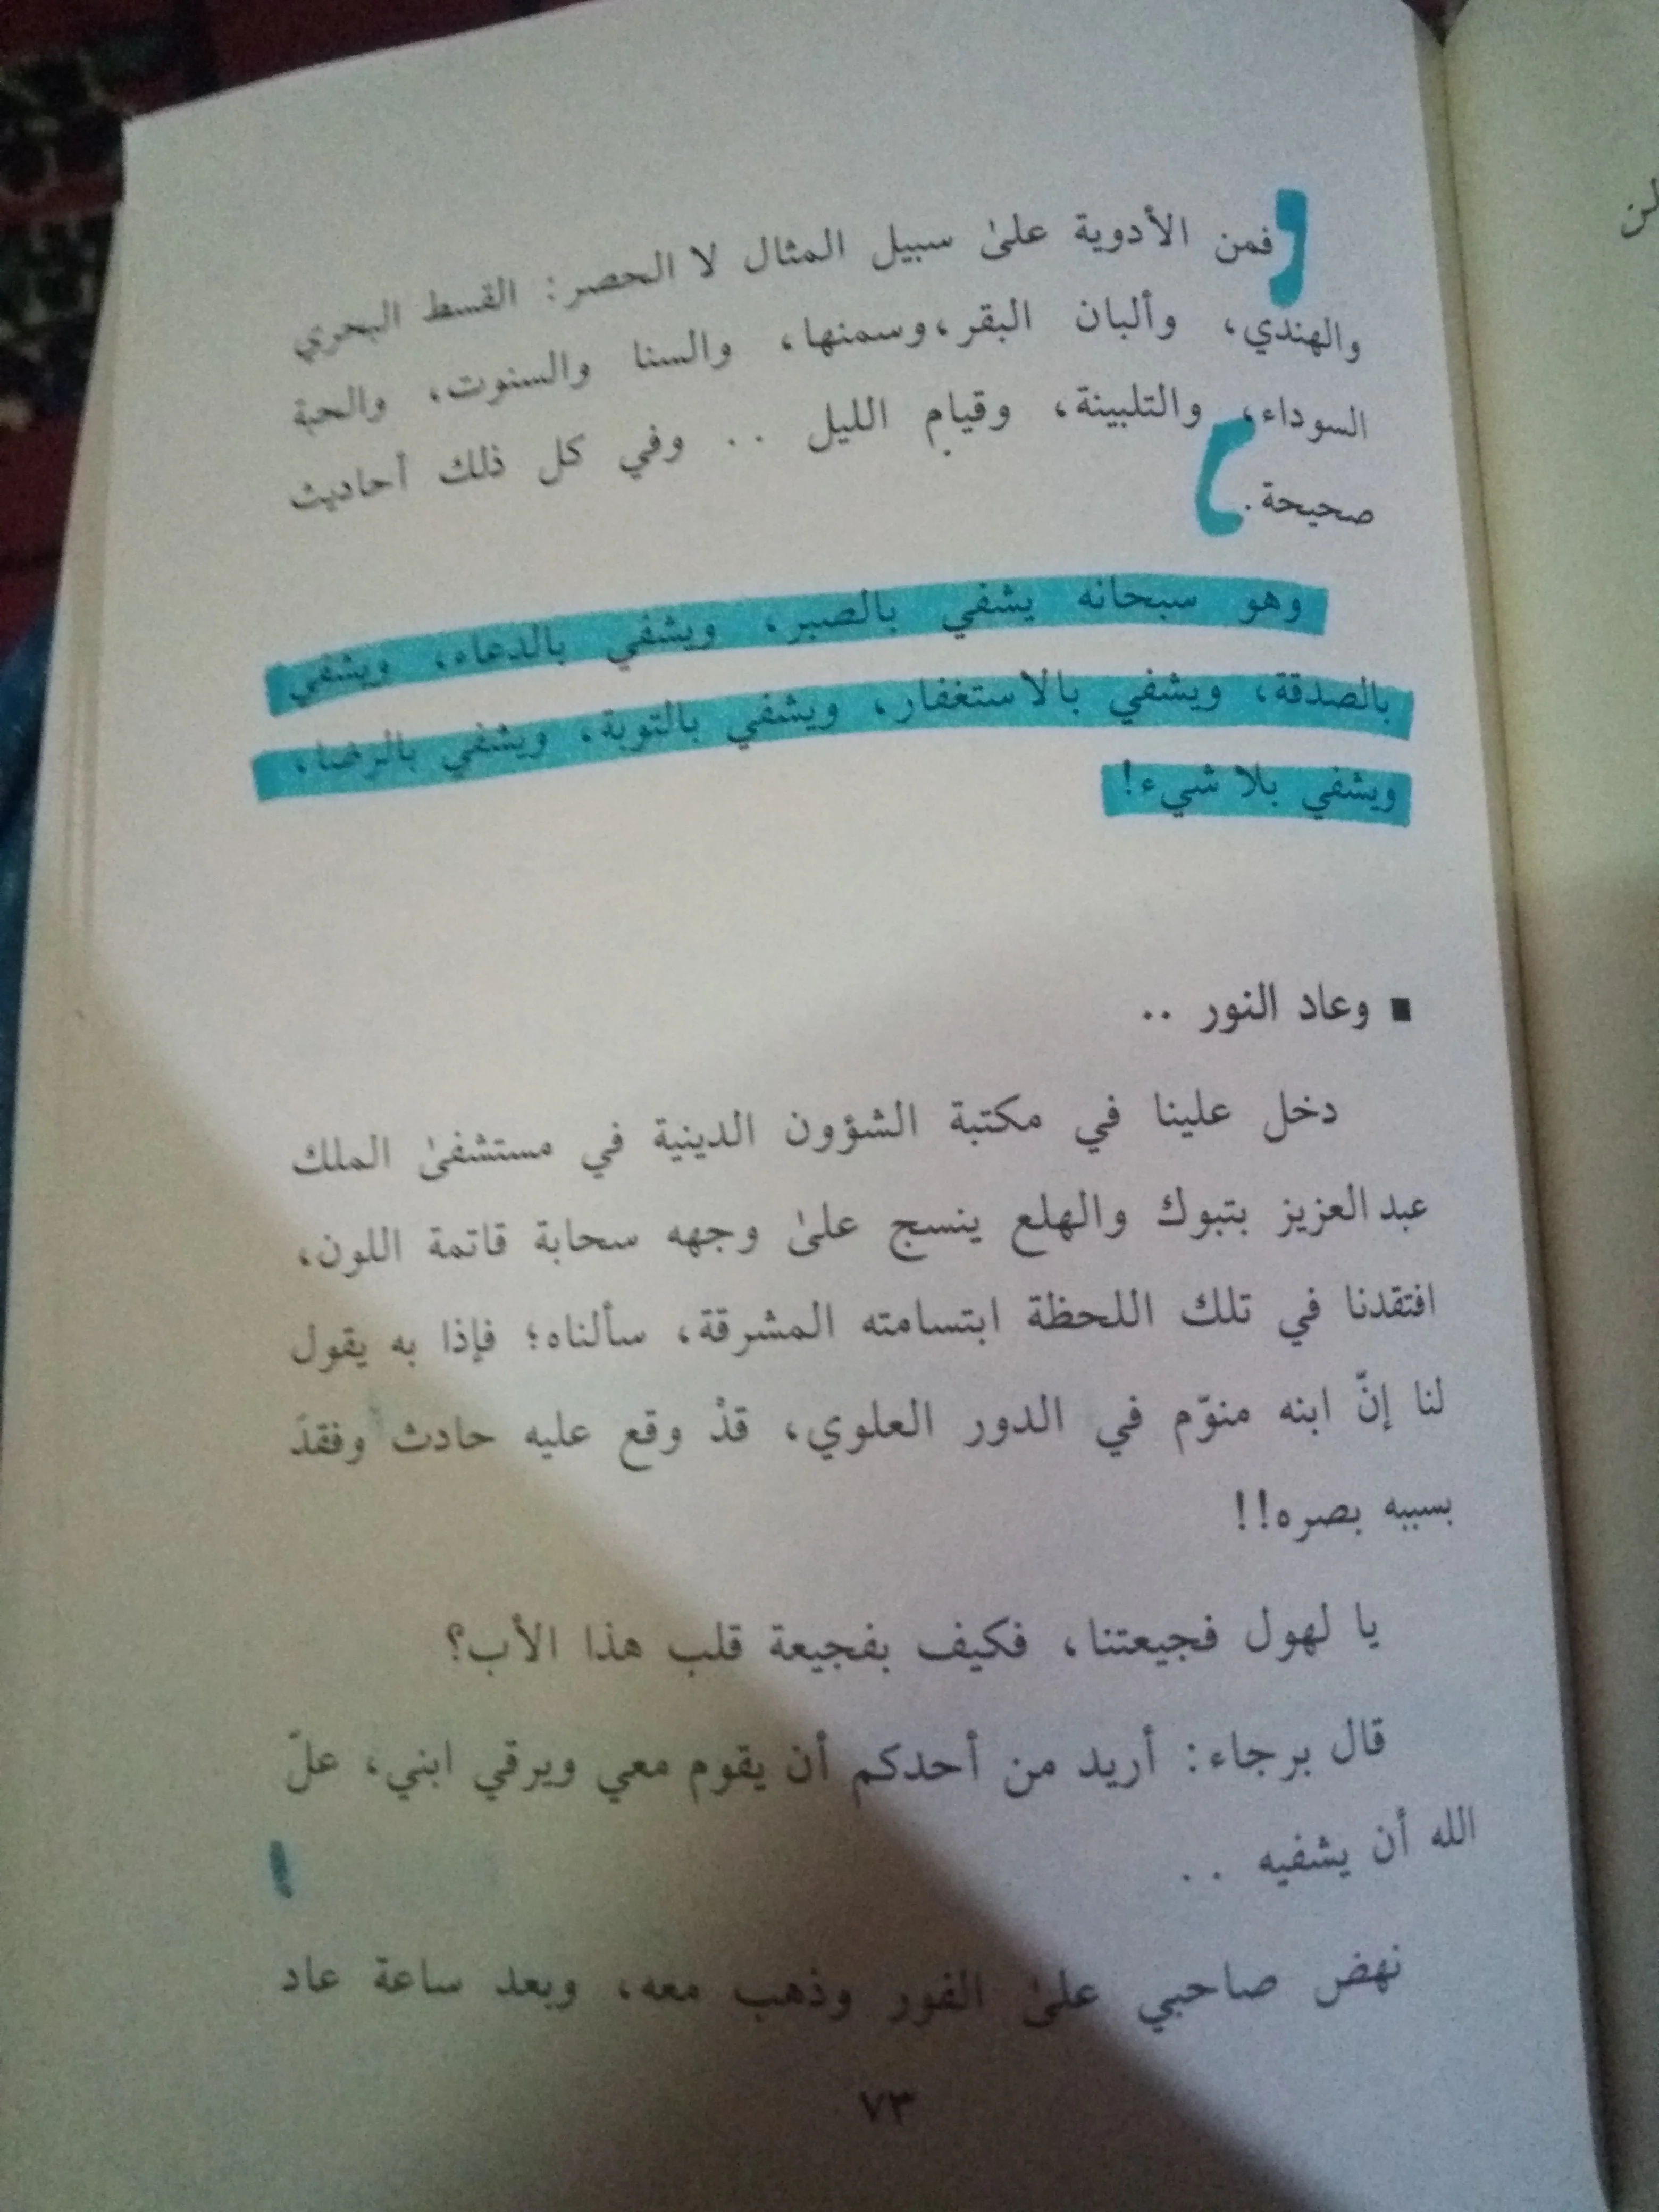 فمن الأدوية علىٰ سبيل المثال لا الحصر: القسط البحري
والهندي، وألبان البقر، وسمنها، والسنا والسنوت، والحبة
السوداء، والتلبينة، وقيام الليل .. وفي كل ذلك أحاديث
صحيحة.
وهو سبحانه يشفي بالصبر، ويشفي بالدعاء، ويشفي
بالصدقة، ويشفي بالاستغفار، ويشفي بالتوبة، ويشفي بالرضا،
ويشفي بلا شيء!
▪ وعاد النور ..
دخل علينا في مكتبة الشؤون الدينية في مستشفىٰ الملك
عبد العزيز بتبوك والهلع ينسج علىٰ وجهه سحابة قاتمة اللون،
افتقدنا في تلك اللحظة ابتسامته المشرقة، سألناه؛ فإذا به يقول
لنا إنّ ابنه منوّم في الدور العلوي، قدْ وقع عليه حادث وفقدَ
بسببه بصره!!
يا لهول فجيعتنا، فكيف بفجيعة قلب هذا الأب؟
قال برجاء: أريد من أحدكم أن يقوم معي ويرقي ابني، علّ
الله أن يشفيه ..
نهض صاحبي علىٰ الفور وذهب معه، وبعد ساعة عاد
٧٣